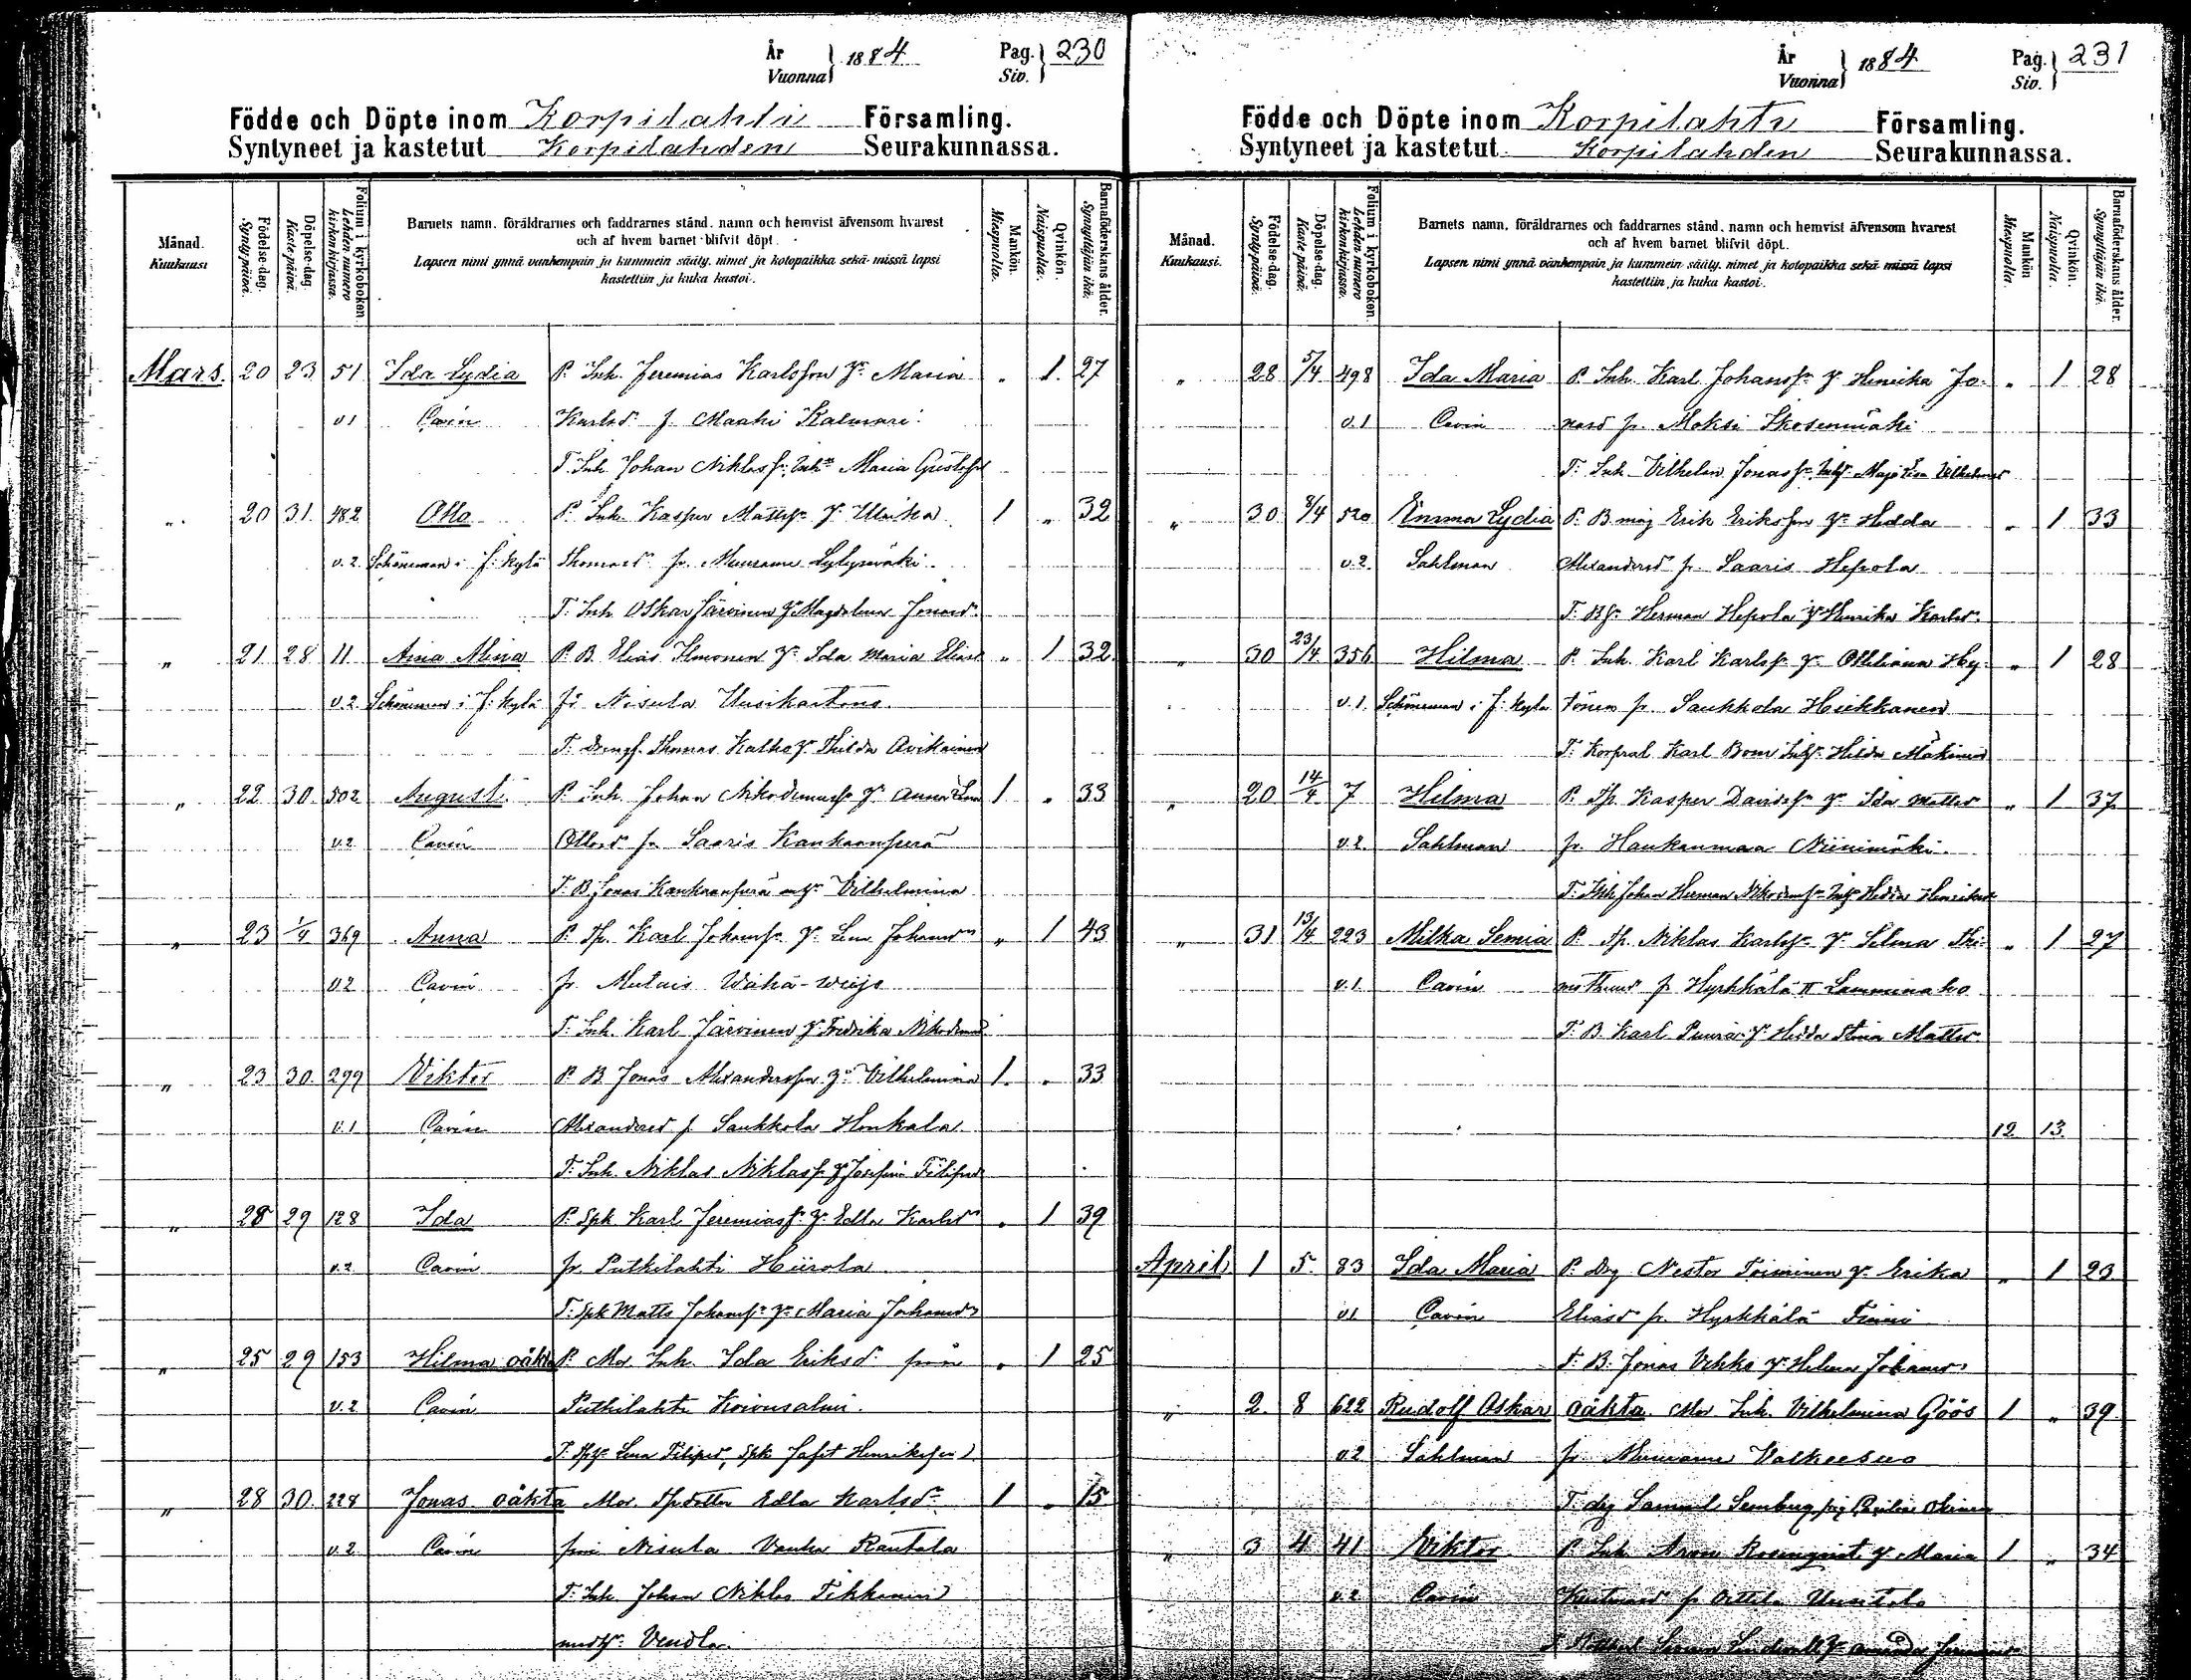 År
Vuonna } 1884
Pag.
Siv. } 230
Födde och Döpte inom Korpilahti Församling.
Syntyneet ja kastetut Korpilahden Seurakunnassa.
Månad.
Kuukausi
Födelse-dag.
Synty-päivä.
Döpelse-dag.
Kaste-päivä.
Folium i kyrkoboken.
Lehden numero kirkonkirjassa.
Barnets namn, föräldrarnes och faddrarnes stånd, namn och hemvist äfvensom hvarest
och af hvem barnet blifvit döpt.
Lapsen nimi ynnä vanhempain ja kummein sääty, nimet ja kotopaikka sekä missä lapsi
kastettiin ja kuka kastoi.
Mankön.
Miespuolta.
Qvinkön.
Naispuolta.
Barnaföderskans ålder.
Synnyttäjän ikä.
Mars. 20 23 51 Ida Lydia P. Inh. Jeremias Karlsson Hr. Maria „ 1. 27
v1 Cavén Karlsd. fr. Maahi Kalmari
T. Inh. Johan Niklass. Maria Gustafsd
„ 20 31. 482 Otto P. Inh. Kasper Mattss. Hr. Ulrika 1 „ 32
v.2. Schöneman i f. kylä Thomasd. fr. Muurame Lylymäki
T. Inh. Oskar Järvinen Hr. Magdalena Jonasd.
„ 21 28 11 Aina Mina P. B. Elias Ilmonen Hr. Ida Maria Eliasd „ 1 32.
v.2 Schöneman i f. kylä fr. Nisula Uusikartano
T. Thomas Kalho Hr. Thilda Avikainen
„ 22 30. 502 August P. Inh. Johan Nikodemuss. Hr. Anna Lena 1 „ 33
v.2 Cavén Ottosd fr. Saaris Kankaanperä
T. B. Jonas Kankaanperä Hr. Vilhelmina
„ 23 1/4 369 Anna P. Tp. Karl Johanss. Hr. Lena Johansd „ 1 43
v2 Cavén fr. Mutais
T. Inh. Karl Järvinen Hr. Fredrika Nikodemusd
„ 23 30. 299 Viktor P. B. Jonas Alexandersson Hr. Vilhelmina 1. „ 33
v.1 Cavén Alexandersd f. Saukkola Honkala
T. Inh. Niklas Niklass. Hr. Josefina Filipsd
„ 28 29 128 Ida P. Spk Karl Jeremiass. Hr. Edla Karlsd „ 1 39
v.2 Cavén fr. Putkilahti Hiirola
T. Spk Matts Johanss. Hr. Maria Johansd
„ 25 29 153 Hilma oäkta P. Mor. Inh. Ida Eriksd. från „ 1 25
v.2 Cavén Putkilahti Koivusalmi.
T. Lena Filipsd, Spk Jafet Henriksson
„ 28 30. 228 Jonas oäkta Mor. Tp. dotter Edla Karlsd. 1 „ 15
v.2 Cavén från Nisula Vanha Rautala
T. Inh. Johan Niklas Tikkanen
med Hr. Vendla.
År
Vuonna } 1884
Pag.
Siv. } 231
Födde och Döpte inom Korpilahti Församling.
Syntyneet ja kastetut Korpilahden Seurakunnassa.
Månad.
Kuukausi.
Födelse-dag.
Synty-päivä.
Döpelse-dag.
Kaste-päivä.
Folium i kyrkoboken.
Lehden numero kirkonkirjassa.
Barnets namn, föräldrarnes och faddrarnes stånd, namn och hemvist äfvensom hvarest
och af hvem barnet blifvit döpt.
Lapsen nimi ynnä vanhempain ja kummein sääty, nimet ja kotopaikka sekä missä lapsi
kastettiin ja kuka kastoi.
Mankön
Miespuolta.
Qvinkön.
Naispuolta.
Barnaföderskans ålder.
Synnyttäjän ikä.
„ 28 5/4 498 Ida Maria P. Inh. Karl Johanss. Hr. Henrika Jo- „ 1 28
v.1 Cavén nasd fr. Moksi Ikosenmäki
T. Inh Vilhelm Jonass. Maja Lisa Vilhelmsd
„ 30 8/4 520 Emma Lydia P. B. måg Erik Eriksson Hr. Hedda „ 1 33
v.2. Sahlman Alexandersd fr. Saaris Hepola
T. Herman Hepola Hr. Henrika Karlsd.
„ 30 23/4 356 Hilma P. Inh. Karl Karlss. Hr. Ottiliana Hy- „ 1 28
v.1. Schöneman i f. kylä tönen fr. Saukkola Heikkanen
T. Korpral Karl Bom Hilda Mäkinen
„ 20 14/4 7 Hilma P. Tp. Kasper Davidss. Hr. Ida Mattsd „ 1 37
v.2. Sahlman fr. Haukanmaa Niinimäki
T. Johan Herman Nikodemuss. Hedda Henriksd
„ 31 13/4 223 Milka Semia P. Tp. Niklas Karlss. Hr. Selma Thi- „ 1 27
v.1. Cavén motheusd fr. Hyrkkälä II Lamminaho
T. B. Karl Hr. Hedda Stina Mattsd
12 13.
April 1 5. 83 Ida Maria P. Drg Nestor Toiminen Hr. Erika „ 1 23
v1 Cavén Eliasd fr. Hyrkkälä Tiainen
T. B. Jonas Vehko Hr. Helena Johansd
„ 2. 8 622 Rudolf Oskar oäkta Mor Inh. Vilhelmina Göös 1 „ 39.
v2 Sahlman fr. Muurame Valkeesuo
T. drg Samuel
„ 3 4 41 Viktor P. Inh. Aron Rosenqvist Hr. Maria 1 „ 34
v.2 Cavén fr.